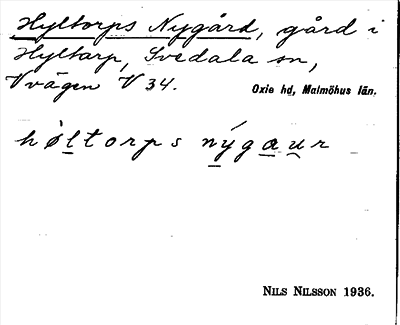 Hyltorps Nygård, gård i
Hyltarp, Svedala sn,
Vvägen V 34.
Oxie hd, Malmöhus län.
høltorps nýgaur
NILS NILSSON 1936.